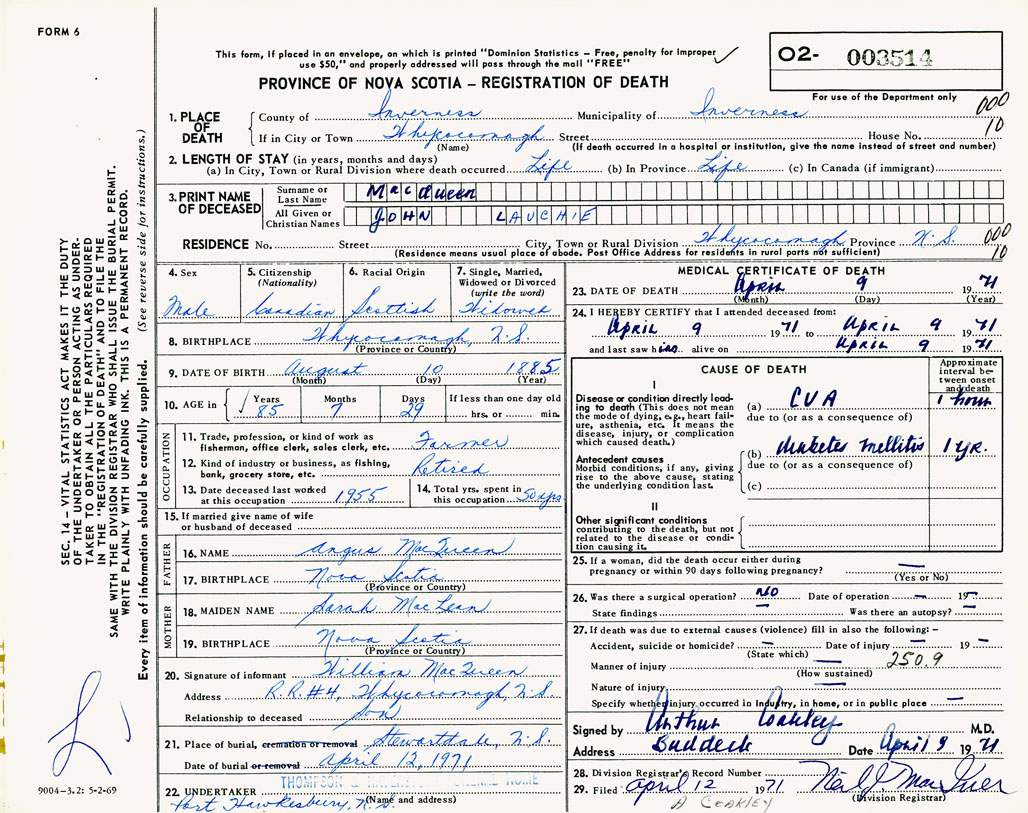 FORM 6
This form, if placed in an envelope, on which is printed "Dominion Statistics – Free, penalty for improper
use $50," and properly addressed will pass through the mail "FREE"
O2- 003514
For use of the Department only
PROVINCE OF NOVA SCOTIA – REGISTRATION OF DEATH
000
10
1. PLACE OF DEATH
County of Inverness Municipality of Inverness
If in City or Town Whycocomagh Street House No.
(Name) (If death occurred in a hospital or institution, give the name instead of street and number)
2. LENGTH OF STAY (in years, months and days)
(a) In City, Town or Rural Division where death occurred Life (b) In Province Life (c) In Canada (if immigrant)
3. PRINT NAME OF DECEASED
Surname or Last Name MacQueen
All Given or Christian Names JOHN LAUCHIE
RESIDENCE No. Street City, Town or Rural Division Whycocomagh Province N.S.
000
10
(Residence means usual place of abode. Post Office Address for residents in rural parts not sufficient)
4. Sex
Male
5. Citizenship
(Nationality)
Canadian
6. Racial Origin
Scottish
7. Single, Married,
Widowed or Divorced
(write the word)
Widowed
8. BIRTHPLACE Whycocomagh, N.S.
(Province or Country)
9. DATE OF BIRTH August 10 1885
(Month) (Day) (Year)
10. AGE in Years Months Days If less than one day old
85 7 29 hrs. or min.
OCCUPATION
11. Trade, profession, or kind of work as
fisherman, office clerk, sales clerk, etc. Farmer
12. Kind of industry or business, as fishing,
bank, grocery store, etc. Retired
13. Date deceased last worked
at this occupation 1955
14. Total yrs. spent in
this occupation 50 yrs
15. If married give name of wife
or husband of deceased
FATHER
16. NAME Angus MacQueen
17. BIRTHPLACE Nova Scotia
(Province or Country)
MOTHER
18. MAIDEN NAME Sarah MacLean
19. BIRTHPLACE Nova Scotia
(Province or Country)
20. Signature of informant William MacQueen
Address R.R.#4, Whycocomagh, N.S.
Relationship to deceased Son
21. Place of burial, cremation or removal Stewartdale, N.S.
Date of burial or removal April 12, 1971
THOMPSON & HOME
22. UNDERTAKER
(Name and address)
Port Hawkesbury, N.S.
MEDICAL CERTIFICATE OF DEATH
23. DATE OF DEATH April 9 1971
(Month) (Day) (Year)
24. I HEREBY CERTIFY that I attended deceased from:
April 9 1971 to April 9 1971
and last saw him alive on April 9 1971
CAUSE OF DEATH
Approximate
interval be-
tween onset
and death
I
Disease or condition directly lead-
ing to death (This does not mean
the mode of dying, e.g., heart fail-
ure, asthenia, etc. It means the
disease, injury, or complication
which caused death.)
(a) CVA 1 hour
due to (or as a consequence of)
Antecedent causes
Morbid conditions, if any, giving
rise to the above cause, stating
the underlying condition last.
(b) diabetes mellitis 1 yr.
due to (or as a consequence of)
(c)
II
Other significant conditions
contributing to the death, but not
related to the disease or condi-
tion causing it.
25. If a woman, did the death occur either during
pregnancy or within 90 days following pregnancy? —
(Yes or No)
26. Was there a surgical operation? NO Date of operation — 19 –
State findings — Was there an autopsy? –
27. If death was due to external causes (violence) fill in also the following: –
Accident, suicide or homicide? – Date of injury – 19 –
(State which)
Manner of injury — 250.9
(How sustained)
Nature of injury
Specify whether injury occurred in industry, in home, or in public place —
Signed by Arthur Coakley M.D.
Address Baddeck Date April 9 1971
28. Division Registrar's Record Number
29. Filed April 12 1971 Neil J. MacIver
(Division Registrar)
A COAKLEY
SEC. 14 – VITAL STATISTICS ACT MAKES IT THE DUTY
OF THE UNDERTAKER OR PERSON ACTING AS UNDER-
TAKER TO OBTAIN ALL THE PARTICULARS REQUIRED
IN THE "REGISTRATION OF DEATH" AND TO FILE THE
SAME WITH THE DIVISION REGISTRAR WHO SHALL ISSUE THE BURIAL PERMIT.
WRITE PLAINLY WITH UNFADING INK. THIS IS A PERMANENT RECORD.
Every item of information should be carefully supplied. (See reverse side for instructions.)
9004-3.2: 5-2-69